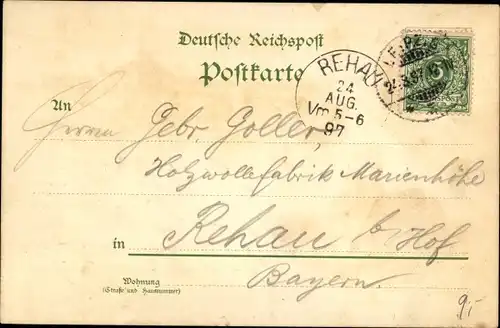 Deutsche Reichspost
Postkarte
REHAU
24
AUG.
Vm 5-6
97
An
Herren Gebr. Goller,
Holzwollefabrik Marienhöhe
in Rehau b/Hof
Bayern.
Wohnung
(Straße und Hausnummer)
9,-